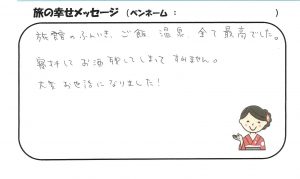 旅の幸せメッセージ (ペンネーム : )
旅館のふんいき、ご飯、温泉、全て最高でした。
お酒 してしまって すみません。
大変 お世話になりました!